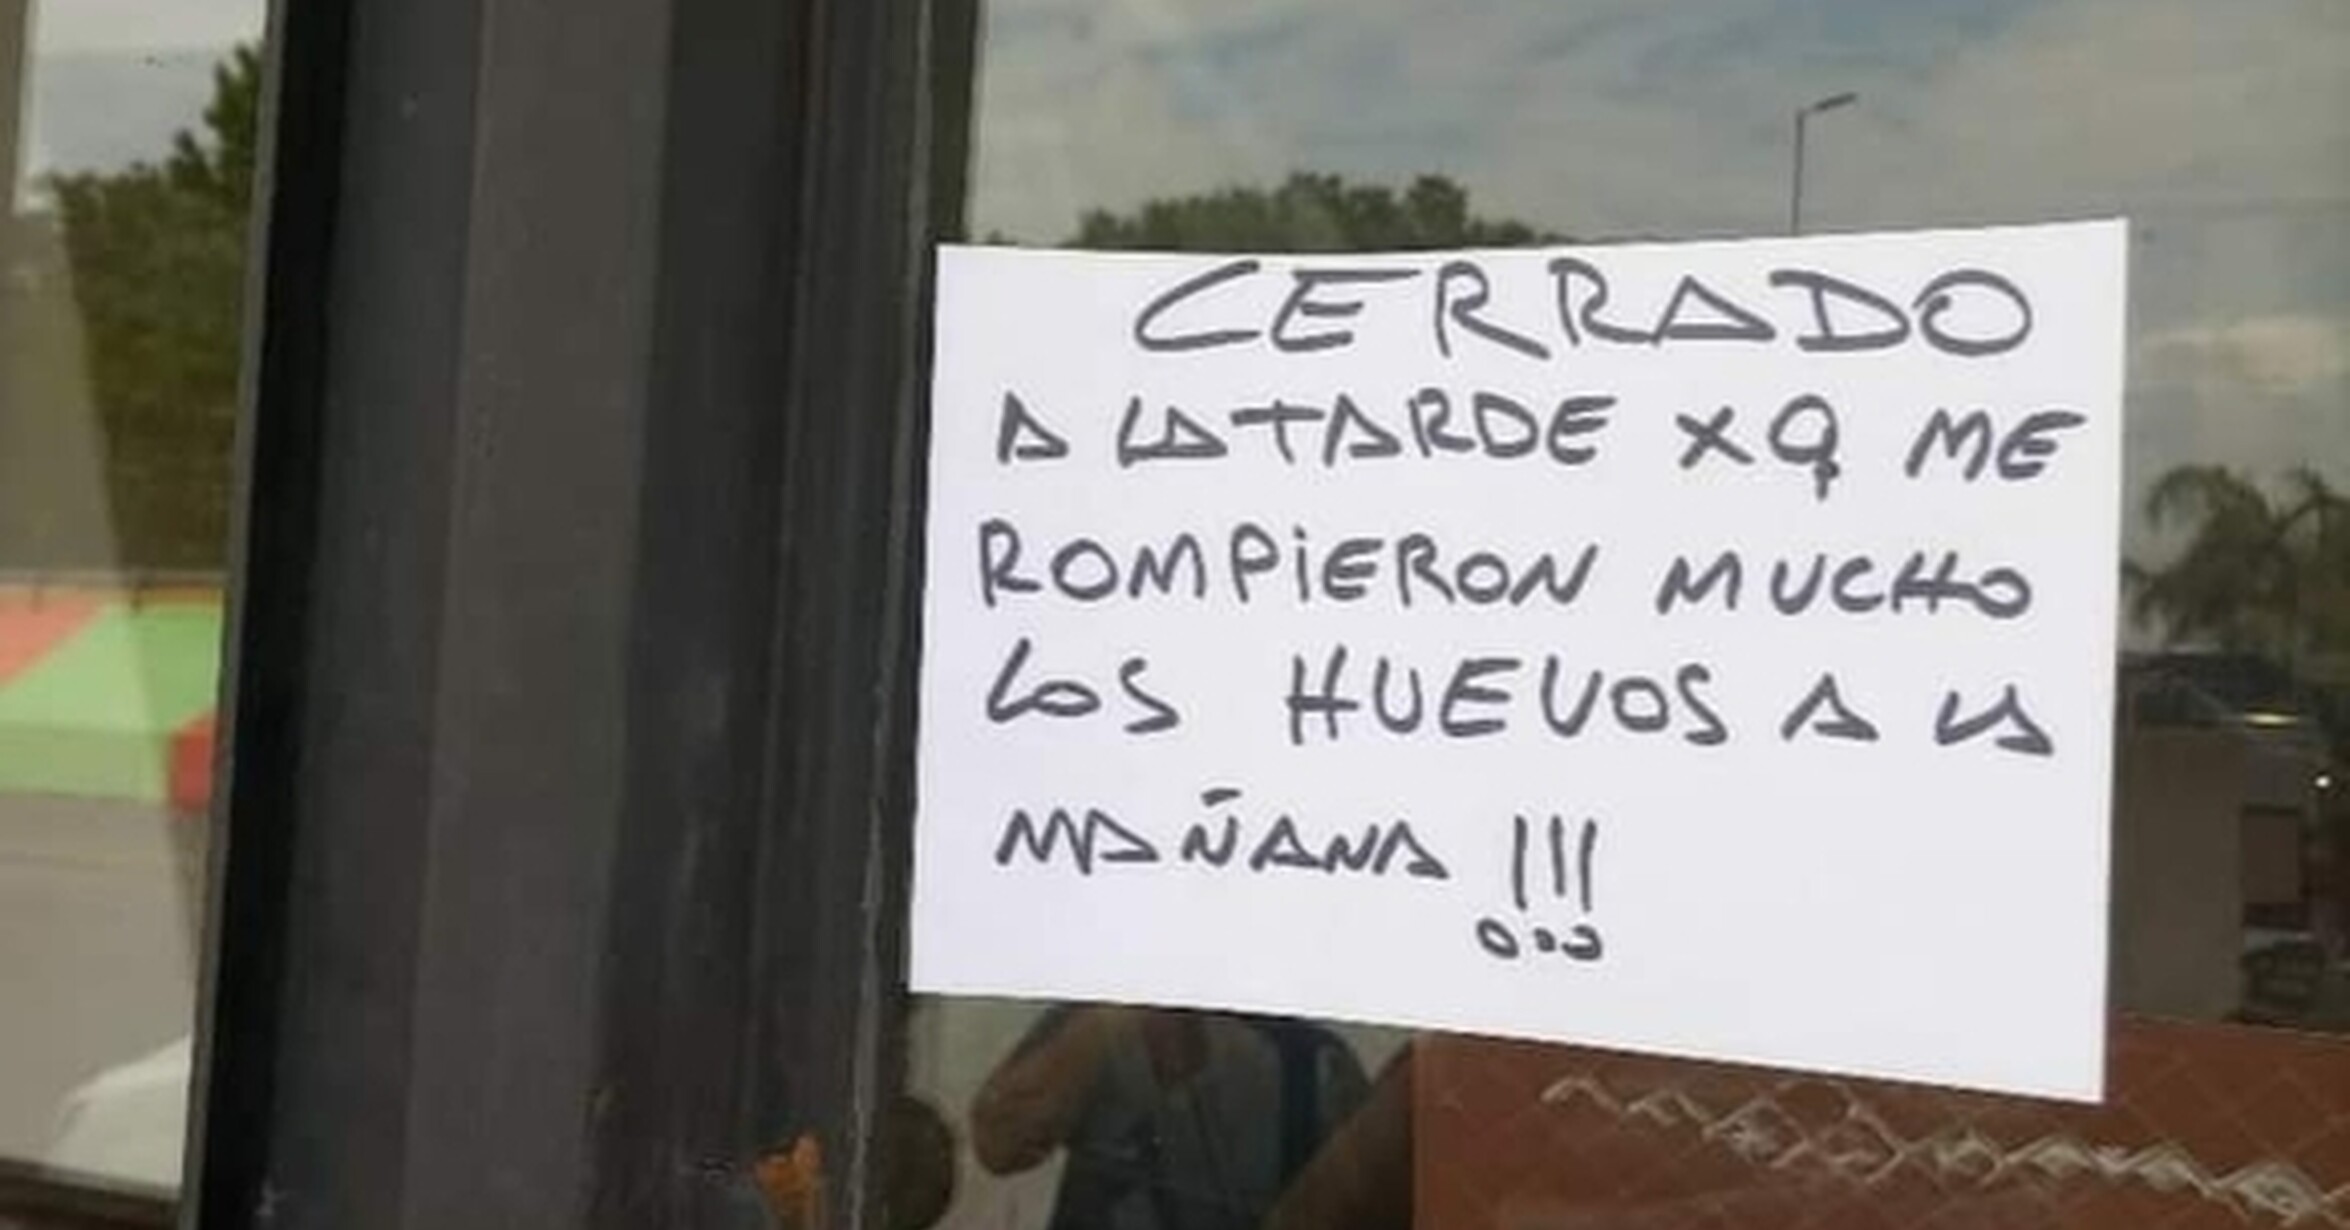 CERRADO
A LA TARDE XQ ME
ROMPiERON MUCHO
LOS HUEVOS A LA
MAÑANA !!!